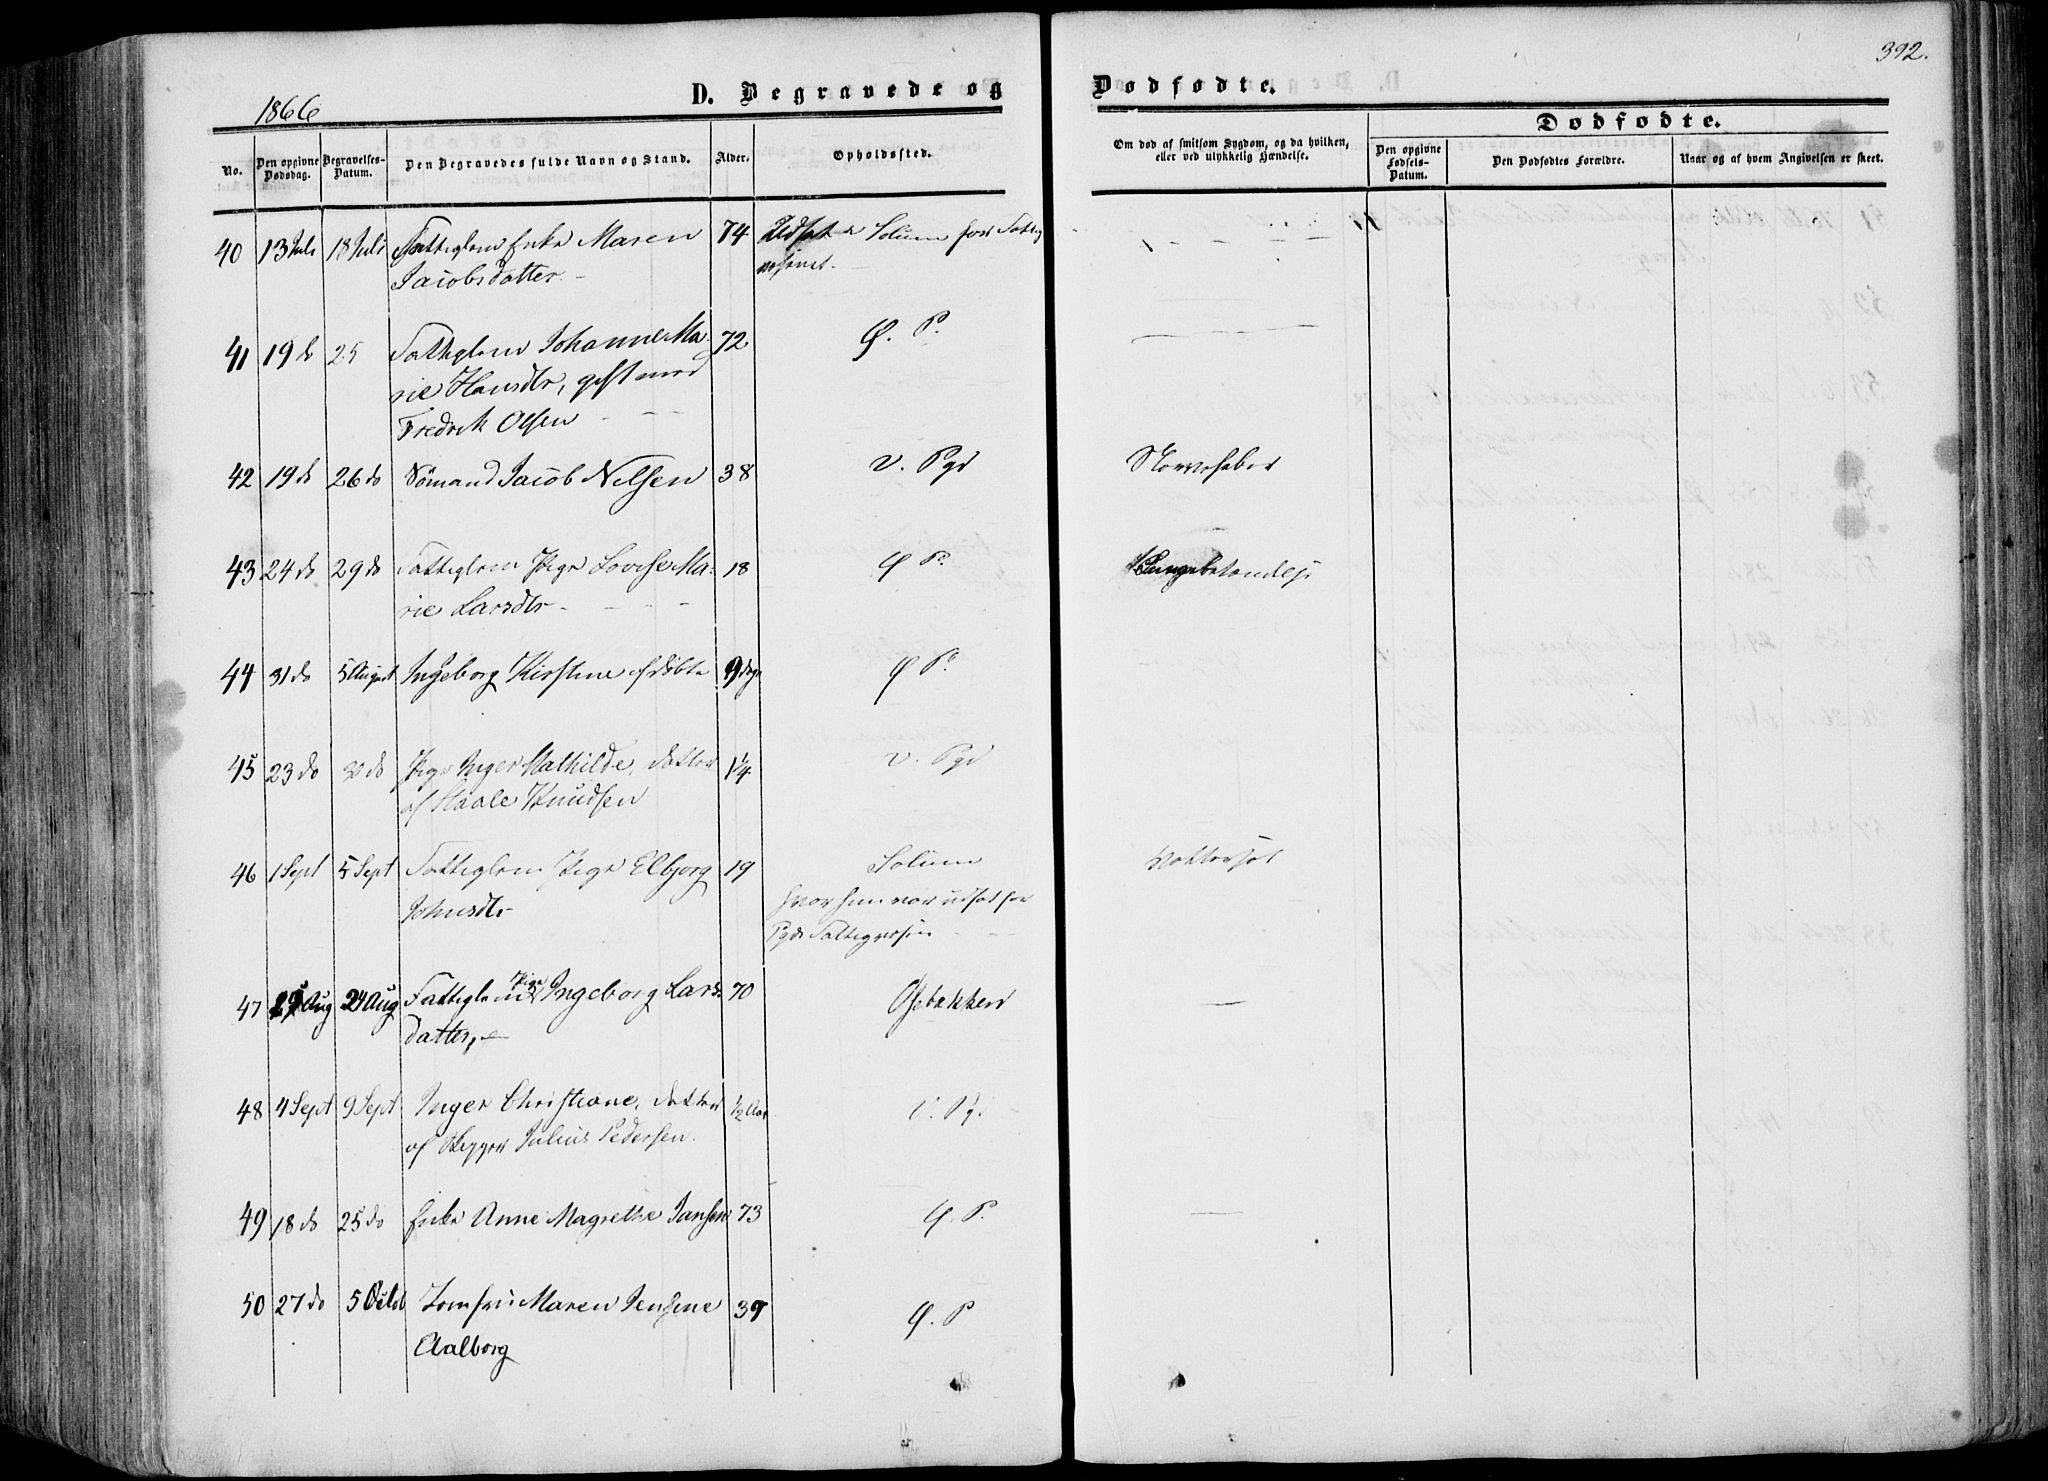 392.
1866
D. Begravede og Dødfødte.
No.
Den opgivne Dødsdag.
Begravelses-Datum.
Den Begravedes fulde Navn og Stand.
Alder.
Opholdssted.
Om død af smitsom Sygdom, og da hvilken, eller ved ulykkelig Hændelse.
Dødfødte.
Den opgivne Fødsels-Datum.
Den Dødfødtes Forældre.
Naar og af hvem Angivelsen er skeet.
40 13 Juli 18 Juli Fattiglem Enke Maren 74 Udsat i Solum for Fattig
Jacobsdatter. – væsenet. –
41 19 do 25 Fattiglem Johanne Ma 72 Ø. P.
rie Hansdtr, gift med
Fredrik Olsen – –
42 19 do 26 do Sømand Jacob Nilsen 38 V. Pgd Nervefeber
43 24 do 29 do Fattiglem Pige Lovise Ma- 18 Ø P. Lungebetændelse
rie Larsdtr – – –
44 31 do 5 August Ingeborg Kirstine 9 dage Ø P.
45 23 do 30 do Pige Inger Mathilde, datter 1/4 V. Pgd
af Staale Knudsen
46 1 Sept 5 Sept Fattiglem Pige Elbjorg 19 Solum
Johnsdtr hvor hun var udsat for
Pgds Fattigvæsen – –
47 Aug 24 Aug Fattiglem Pige Ingeborg Lars- 70
datter, –
48 4 Sept 9 Sept Inger Christiane, datter 1/2 Aar V. Pgd
af Julius Pedersen.
49 18 do 25 do Enke Anne Magrethe Jansen 73 Ø. P. –
50 27 do 5 Octob Jomfru Maren Jensine 39 Ø. P
Aalborg